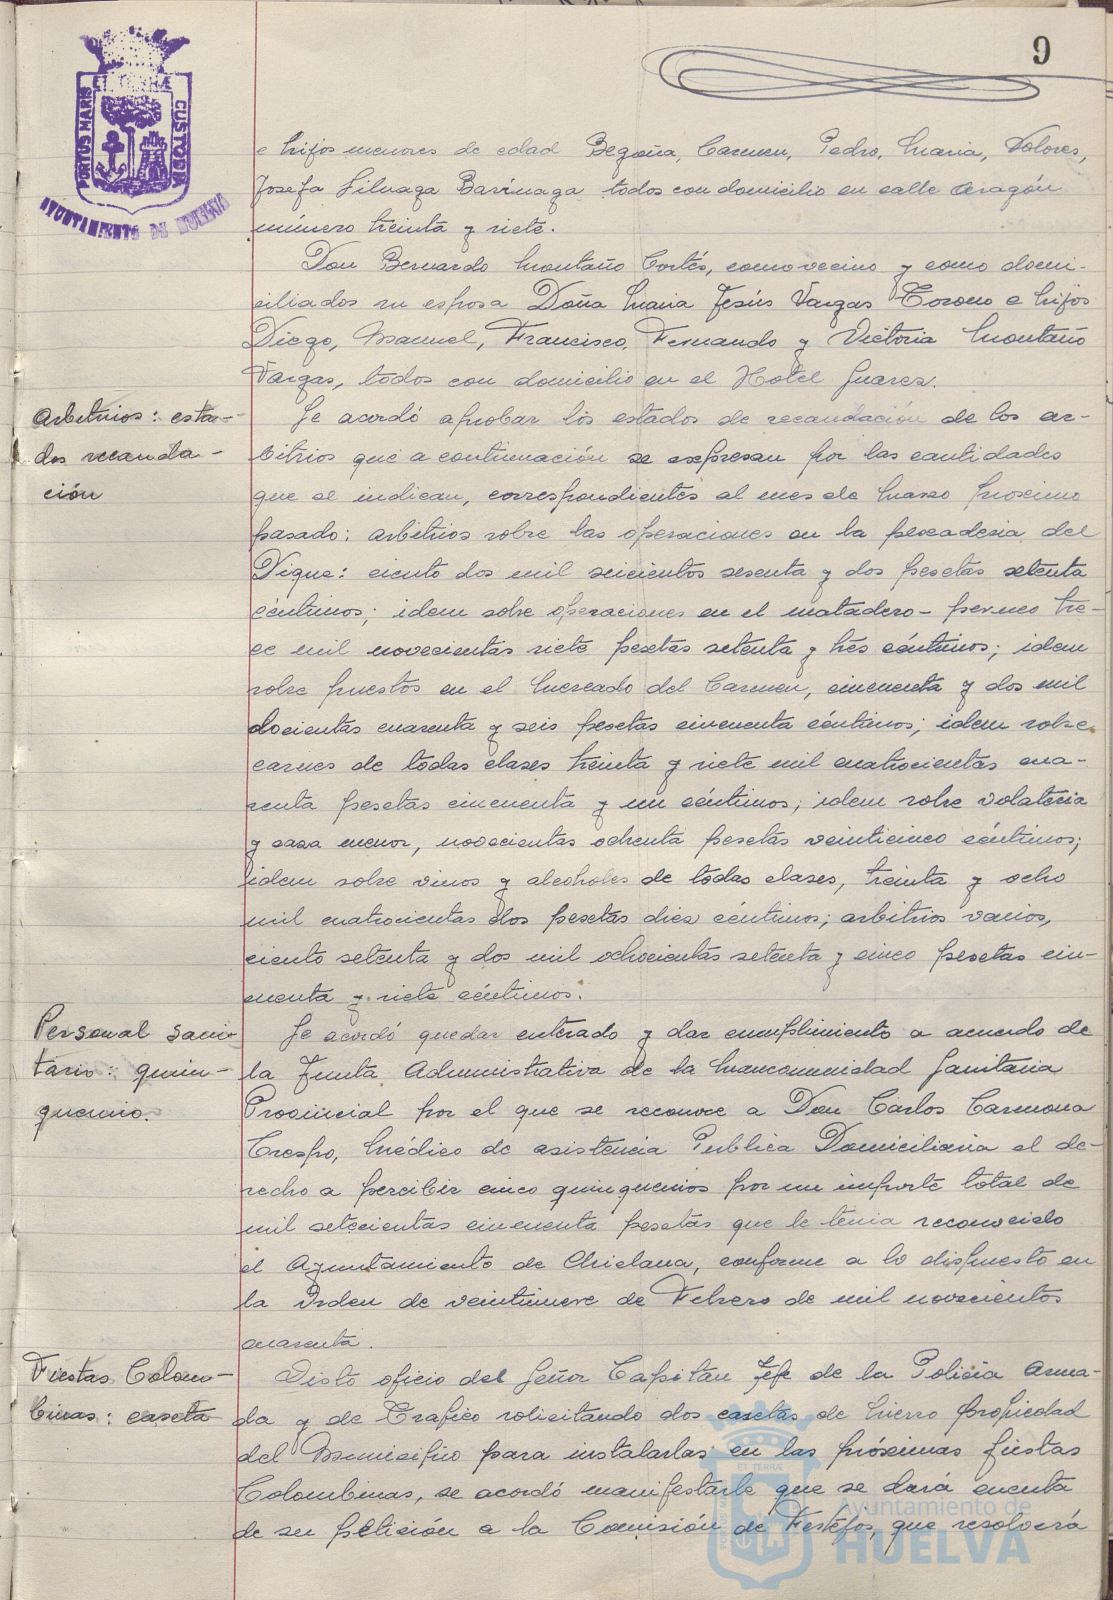 9
PORTUS MARIS ET TERRAE CUSTODIA
AYUNTAMIENTO DE HUELVA
e hijos menores de edad Begoña, Carmen, Pedro, Maria, Dolores,
Josefa Liluaga Barinaga todos con domicilio en calle Aragón
número treinta y siete.
Don Bernardo Montaño Cortés, como vecino y como domi-
ciliados su esposa Doña Maria Jesús Vargas Corono e hijos
Diego, Manuel, Francisco, Fernando y Victoria Montaño
Vargas, todos con domicilio en el Hotel Suarez.
Arbitrios: esta-
dos recauda-
ción
Se acordó aprobar los estados de recaudación de los ar-
bitrios que a continuación se expresan por las cantidades
que se indican, correspondientes al mes de Marzo proximo
pasado: arbitrios sobre las operaciones en la pescaderia del
Dique: ciento dos mil seicientos sesenta y dos pesetas setenta
céntimos; idem sobre operaciones en el matadero- permeo tre-
ce mil novecientas siete pesetas setenta y trés céntimos; idem
sobre puestos en el Mercado del Carmen, cincuenta y dos mil
docientas cuarenta y seis pesetas cincuenta céntimos; idem sobre
carnes de todas clases treinta y siete mil cuatrocientas cua-
renta pesetas cincuenta y un céntimos; idem sobre volateria
y caza menor, novecientas ochenta pesetas veinticinco céntimos;
idem sobre vinos y alcoholes de todas clases, treinta y ocho
mil cuatrocientas dos pesetas diez céntimos; arbitrios varios,
ciento setenta y dos mil ochocientas setenta y cinco pesetas cin-
cuenta y siete céntimos.
Personal Sani-
tario: quin-
quenio.
Se acordó quedar enterado y dar cumplimiento a acuerdo de
la Junta Administrativa de la Mancomunidad Sanitaria
Provincial por el que se reconoce a Don Carlos Carmona
Crespo, Médico de asistencia Publica Domiciliaria el de-
recho a percibir cinco quinquenios por un importe total de
mil setecientas cincuenta pesetas que le tenia reconocido
el Ayuntamiento de Chiclana, conforme a lo dispuesto en
la Orden de veintinueve de Febrero de mil novecientos
cuarenta.
Fiestas Colom-
binas: caseta
Visto oficio del Señor Capitan Jefe de la Policía Arma-
da y de Trafico solicitando dos casetas de hierro propiedad
del Municipio para instalarlas en las próximas fiestas
Colombinas, se acordó manifestarle que se dará cuenta
de su petición a la Comisión de Festejos, que resolverá
Ayuntamiento de
HUELVA